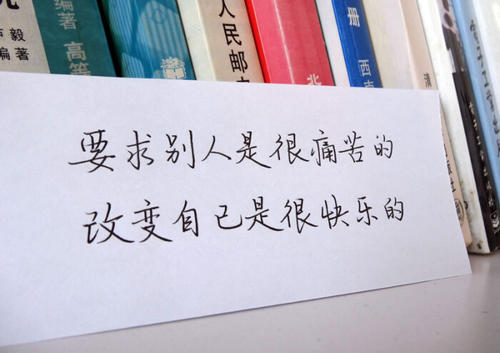 要求别人是很痛苦的
改变自己是很快乐的
编著
编著
高等
人民邮
北
册
西南
清